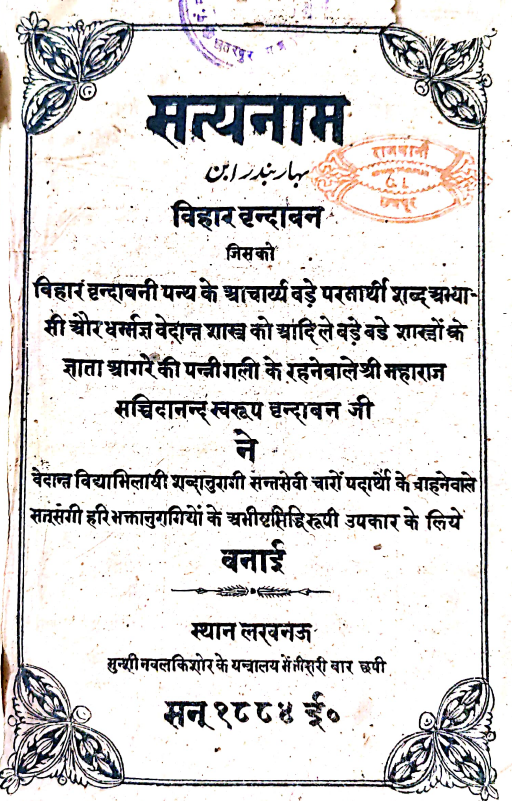 छतरपुर म प्र
सत्यनाम
بہار بندرابن
राजधानी
विहार वृन्दाबन
जिसको
विहार वृन्दाबनी पन्थ के आचार्य्य बड़े परतार्थी शब्द अभ्या-
सी और धर्म्मज्ञ वेदान्त शास्त्र को आदि ले बड़े बडे शास्त्रों के
ज्ञाता आगरे की पन्नी गली के रहनेवाले श्री महाराज
सच्चिदानन्द स्वरूप वृन्दाबन जी
ने
वेदान्त विद्याभिलाषी शब्दानुरागी सन्तसेवी चारों पदार्थों के चाहनेवाले
सतसंगी हरि भक्तानुरागियों के अभीष्टसिद्धिरूपी उपकार के लिये
बनाई
स्थान लखनऊ
मुन्शी नवलकिशोर के यन्त्रालय में तीसरी बार छपी
सन् १८८४ ई०